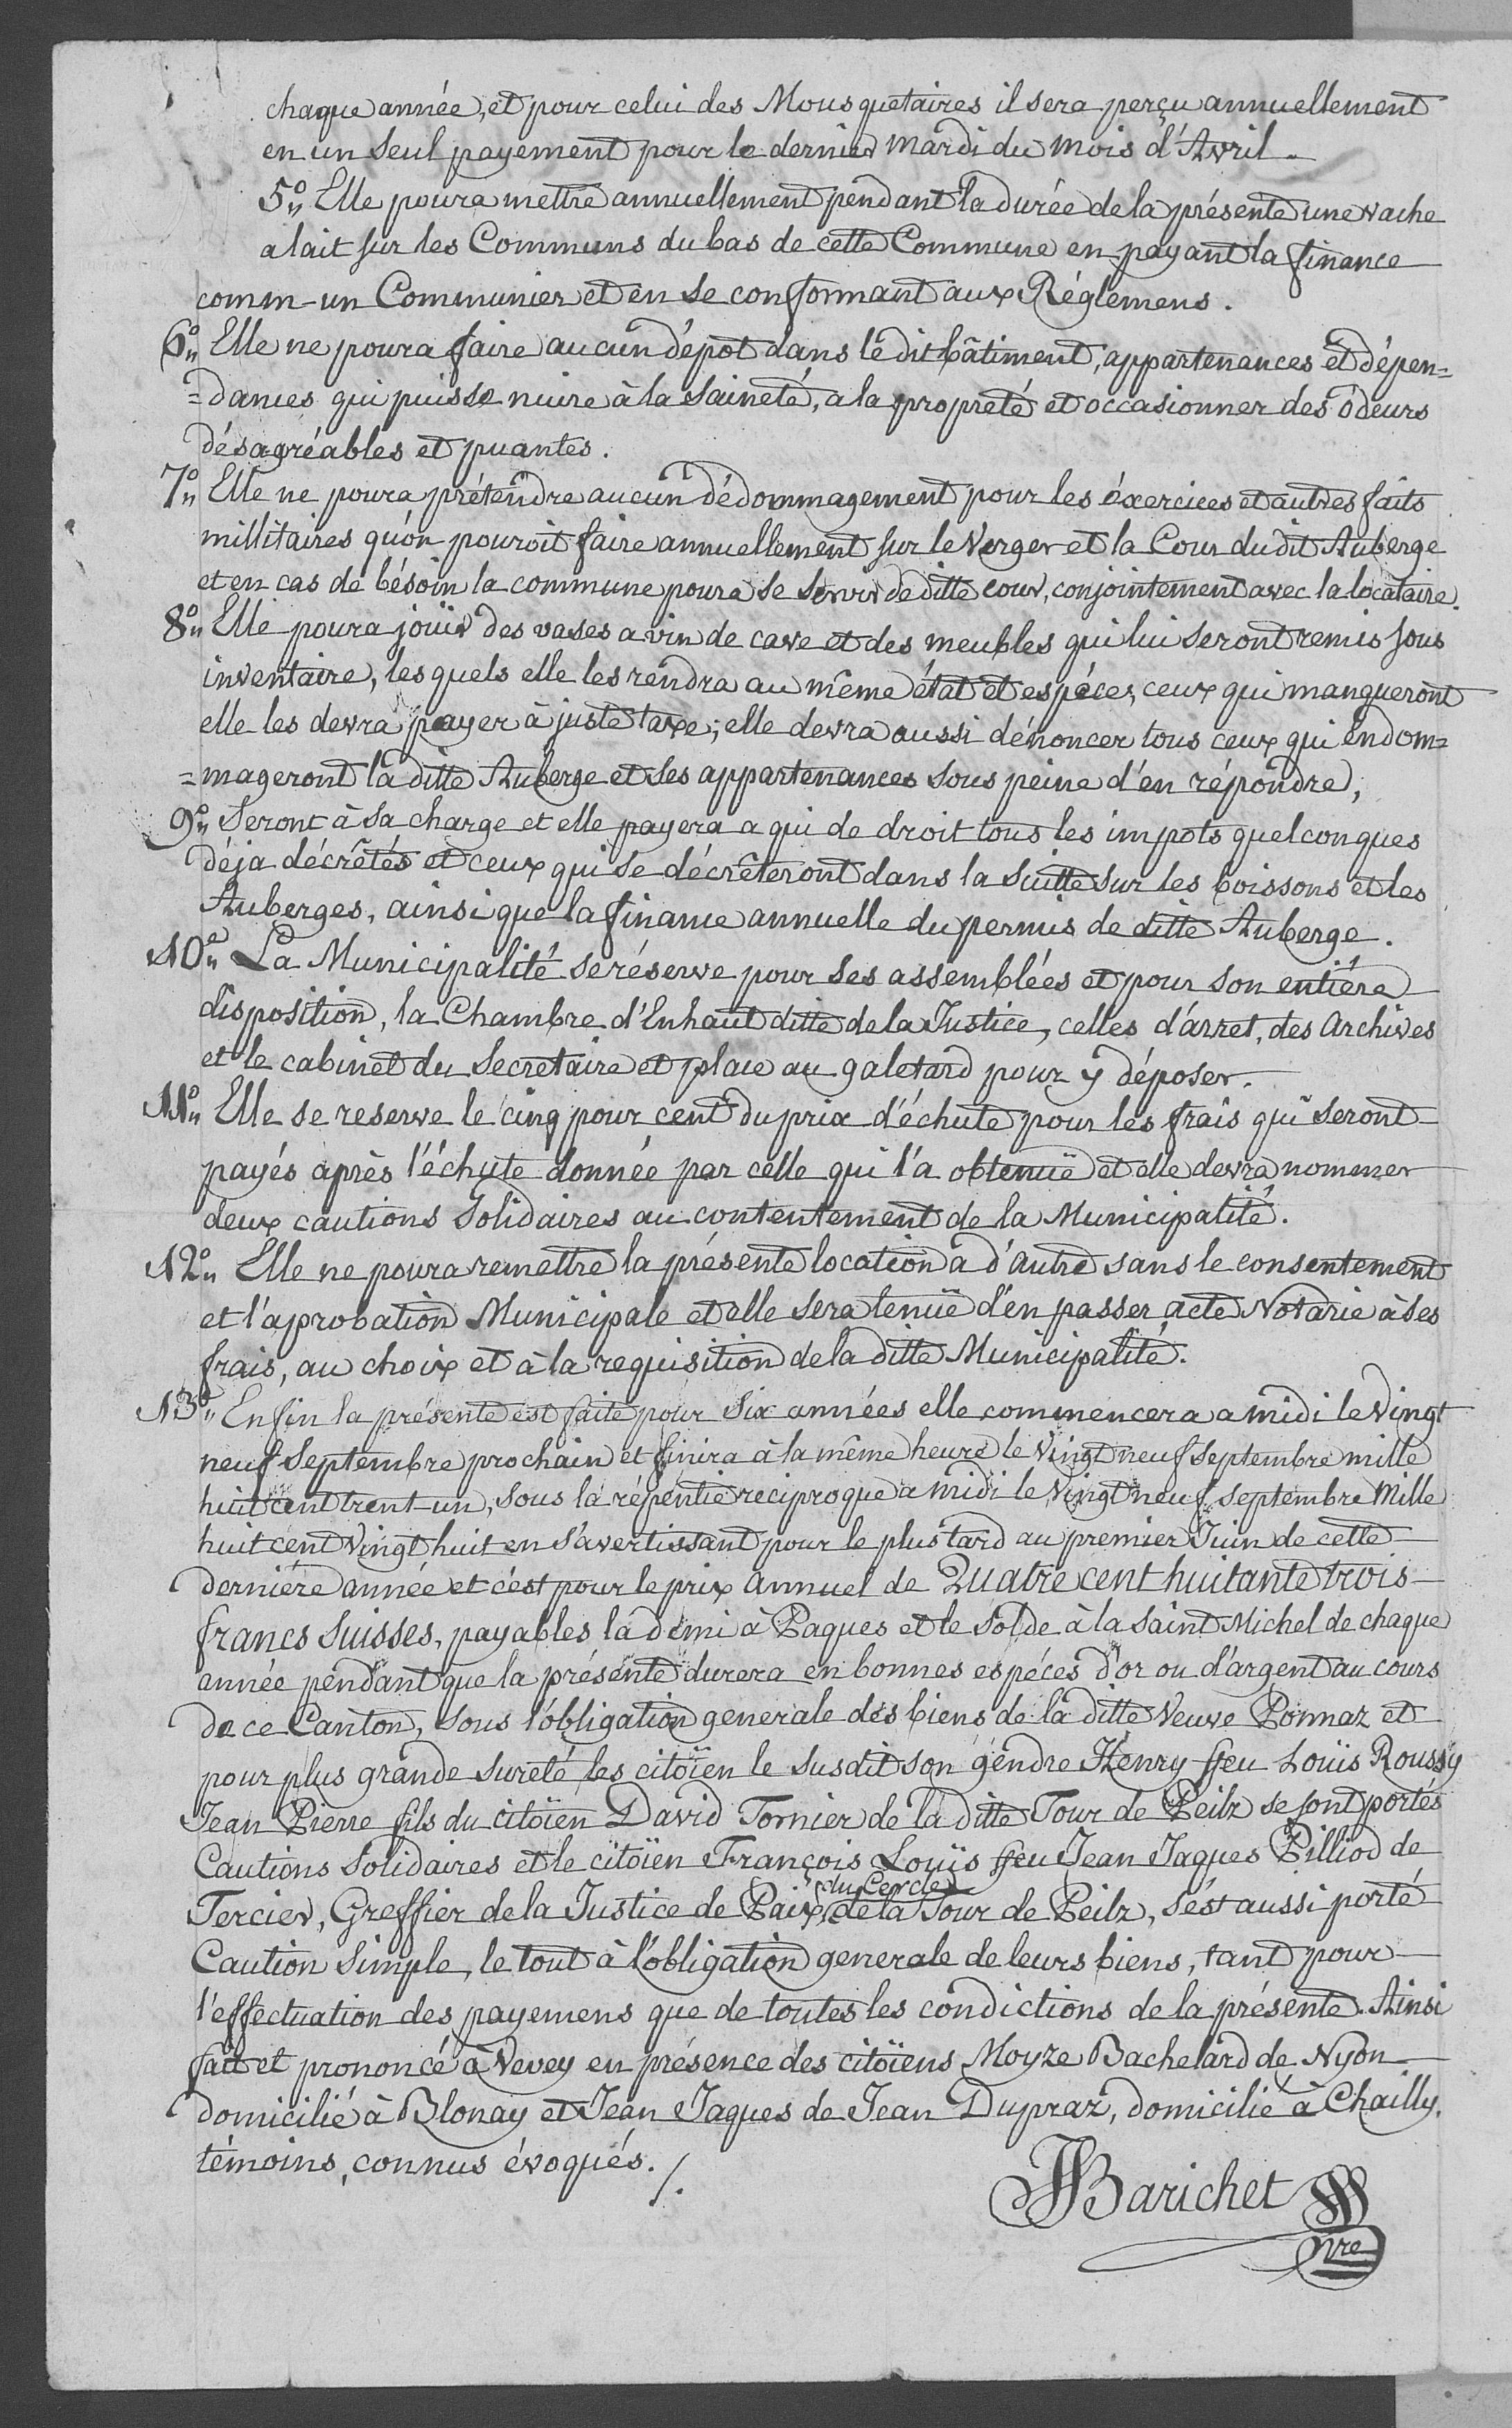 chaque année, et pour celui des Mousquetaires il sera perçu annuellement
en un seul payement pour le dernier mardi du mois d'Avril.
5°„ Elle poura mettre annuellement pendant la durée de la présente une vache
a lait sur les Communs du bas de cette Commune en payant la finance
comm-un Communier et en se conformant aux Réglemens.
6°„ Elle ne poura faire aucun dépot dans lé dit bâtiment, appartenances et dépen=
=dances qui puisse nuire à la saineté, a la propreté et occasionner des odeurs
désagréables et puantes.
7°„ Elle ne poura prétendre aucun dédommagement pour les éxercices et autres faits
millitaires qu'on pouroit faire annuellement sur le Verger et la Cour du dit Auberge
et en cas de bésoin la commune poura se servir de ditte cour, conjointement avec la locataire.
8°„ Elle poura joüir des vases a vin de cave et des meubles qui lui seront remis sous
inventaire, lesquels elle les rendra au même état et espéces, ceux qui manqueront
elle les devra payer à juste taxe; elle devra aussi dénoncer tous ceux qui endom=
=mageront la ditte Auberge et ses appartenances sous peine d'en répondre,
9°„ Seront à sa charge et elle payera a qui de droit tous les impots quelconques
déja décrêtés et ceux qui se décrêteront dans la suitte sur les boissons et les
Auberges, ainsi que la finance annuelle du permis de ditte Auberge.
10°„ La Municipalité se réserve pour ses assemblées et pour son entiére
disposition, la Chambre d'Enhaut ditte de la Justice, celles d'arret, des Archives
et le cabinet du Secretaire et place au galetard pour y déposer.
11°„ Elle se reserve le cinq pour cent du prix d'échute pour les frais qui seront
payés après l'échute donnée par celle qui l'a obtenuë et elle devra nommer
deux cautions Solidaires au contentement de la Municipalité.
12°„ Elle ne poura remettre la présente location a d'autre sans le consentement
et l'aprobation Municipale et elle sera tenuë d'en passer acte Notarié à ses
frais, au choix et à la requisition de la ditte Municipalité.
13°„ Enfin la présente est faite pour six années elle commencera a midi le Vingt
neuf Septembre prochain et finira à la même heure le Vingt neuf Septembre mille
huit cent trent-un, sous la répentie reciproque a midi le Vingt neuf Septembre Mille
huit cent Vingt huit en s'avertissant pour le plus tard au premier Juin de cette
derniére année et c'est pour le prix annuel de Quatre cent huitante trois
francs Suisses, payables la demi à Paques et le solde à la Saint Michel de chaque
année pendant que la présente durera en bonnes espéces d'or ou d'argent au cours
de ce Canton, sous l'obligation generale des biens de la ditte Veuve Ponnaz et
pour plus grande sureté les citöien le susdit son gendre Henry ffeu Loüis Roussy
Jean Pierre fils du citöien David Tornier de la ditte Tour de Peilz se sont portés
Cautions Solidaires et le citöien François Loüis ffeu Jean Jaques Pilliod de
du Cercle
Tercier, Greffier de la Justice de Paix de la Tour de Peilz, s'est aussi porté
Caution Simple, le tout à l'obligation generale de leurs biens, tant pour
l'effectuation des payemens que de toutes les condictions de la présente. Ainsi
fait et prononcé à Vevey en présence des citöiens Moyze Bachelard de Nyon
domicilié à Blonay et Jean Jaques de Jean Dupraz, domicilié à Chailly.
témoins, connus évoqués. /.
Barichet
Nre